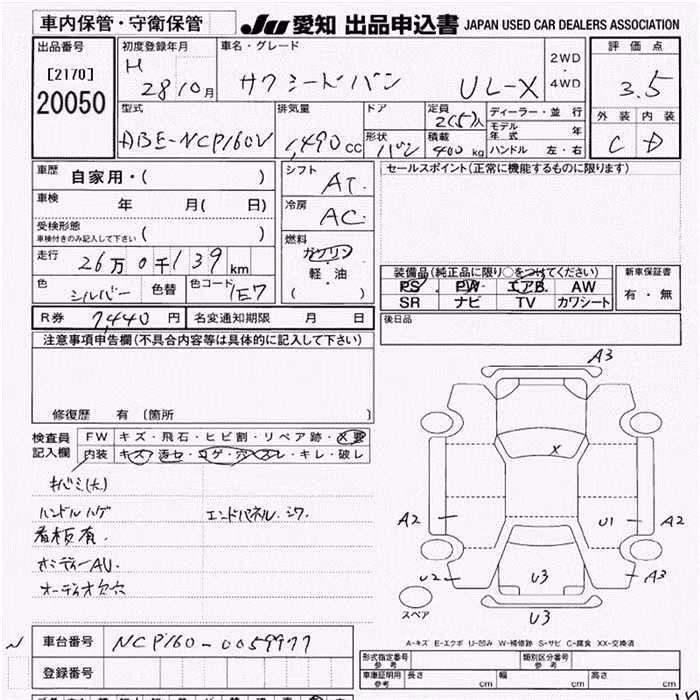 車内保管・守衛保管
JU 愛知 出品申込書 JAPAN USED CAR DEALERS ASSOCIATION
出品番号
[2170]
20050
初度登録年月
H 28 10月
車名・グレード
サクシードバン UL-X
2WD・4WD
評価点
3.5
外装 内装
C D
型式
排気量
1,490 cc
ドア
形状 バン
定員 2(5)人
積載 400 kg
ディーラー・並行
モデル年式 年
ハンドル 左・右
車歴 自家用・( )
車検 年 月( 日)
受検形態
車検付きのみ記入して下さい ( )
走行 26万0千139 km
色 シルバー 色替 色コード 1E7
シフト AT
冷房 AC
燃料
ガソリン
軽・油
( )
セールスポイント(正常に機能するものに限ります)
装備品(純正品に限り○をつけてください)
PS PW エアB AW
SR ナビ TV カワシート
新車保証書
有・無
R券 7,440 円 名変通知期限 月 日
後日品
注意事項申告欄(不具合内容等は具体的に記入して下さい)
修復歴 有 〔箇所 〕
検査員記入欄
FW キズ・飛石・ヒビ割・リペア跡・X要
内装 キズ・汚セ・コゲ・穴・スレ・キレ・破レ
キバミ(大)
ハンドルハゲ エンドパネル シワ
看板有
オーディオ欠穴
A3
X
A2 U1 A2
U2 U3 A3
スペア
U3
A-キズ E-エクボ U-凹み W-補修跡 S-サビ C-腐食 XX-交換済
車台番号 NCP160-0059977
登録番号
形式指定番号 参考
類別区分番号 参考
車庫証明用 参考 長さ cm 幅 cm 高さ cm